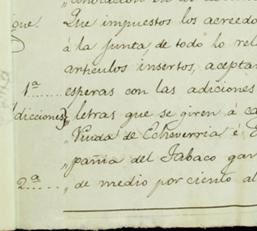 que. Que impuestos los acreedo
á la junta, de todo lo rel
artículos insertos, aceptan
1ª esperas con las adiciones
dicciones, letras que se giren á ca
„Viuda de Echeverria é
„pañia del Tabaco gar
2ª „de medio por ciento al